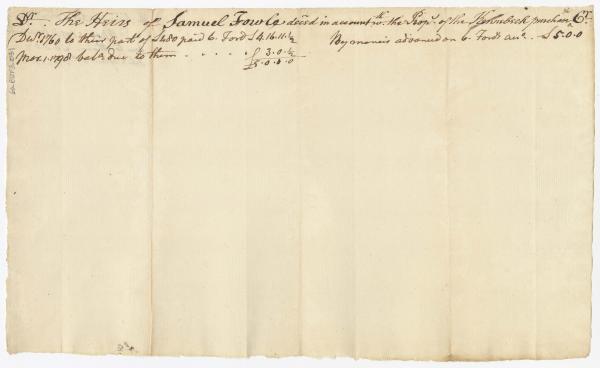 Dr. The Heirs of Samuel Fowle decd in account wth. the Propr. of the Kennebeck purchase Cr.
Decr. 1760 to their part of £480 paid G. Ford £4.16.11½ By moneis advanced on G. Fords acct. .. £5.0.0
Mar. 1. 1798 bale. due to them . . . . . . . 3.0.½
£5.0.0.0